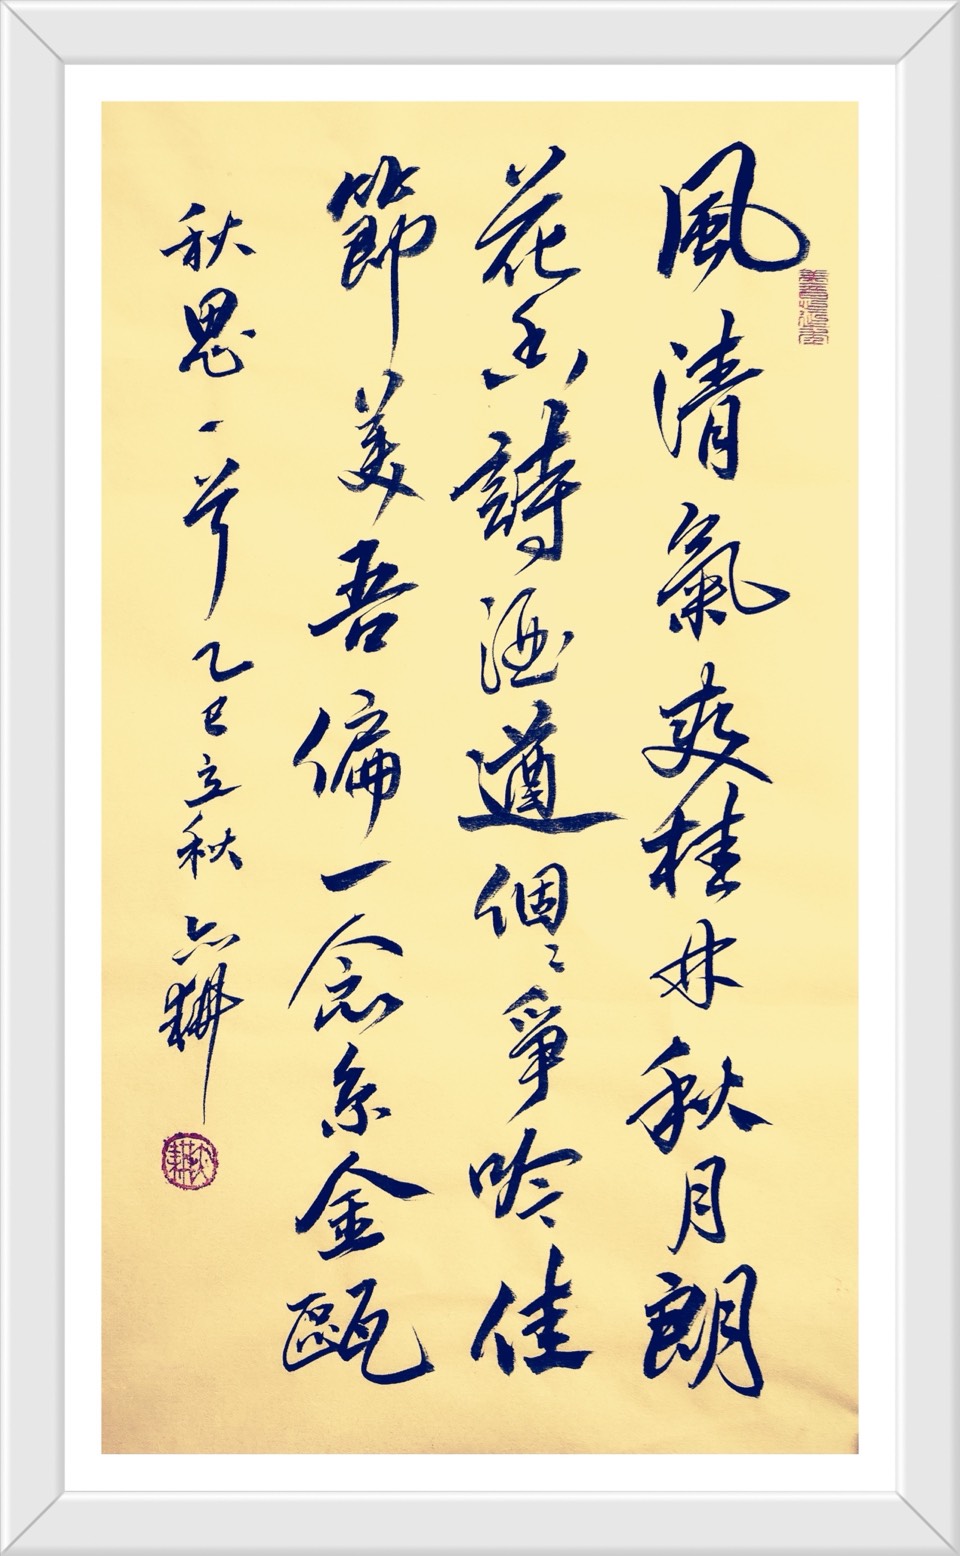 風清氣爽桂林秋月朗
花香詩酒遒個々爭吟佳
節美吾偏一念系金甌
秋思一首乙巳立秋 耕